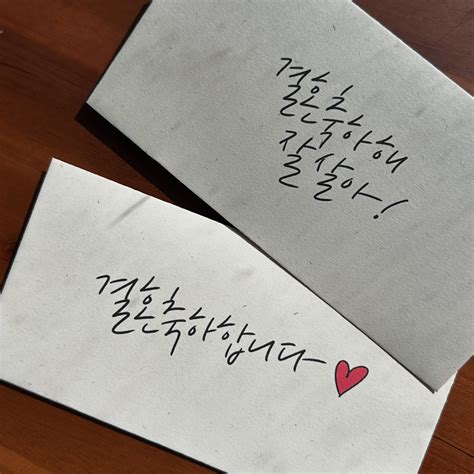 결혼
축하해
잘 살아!
결혼축하합니다